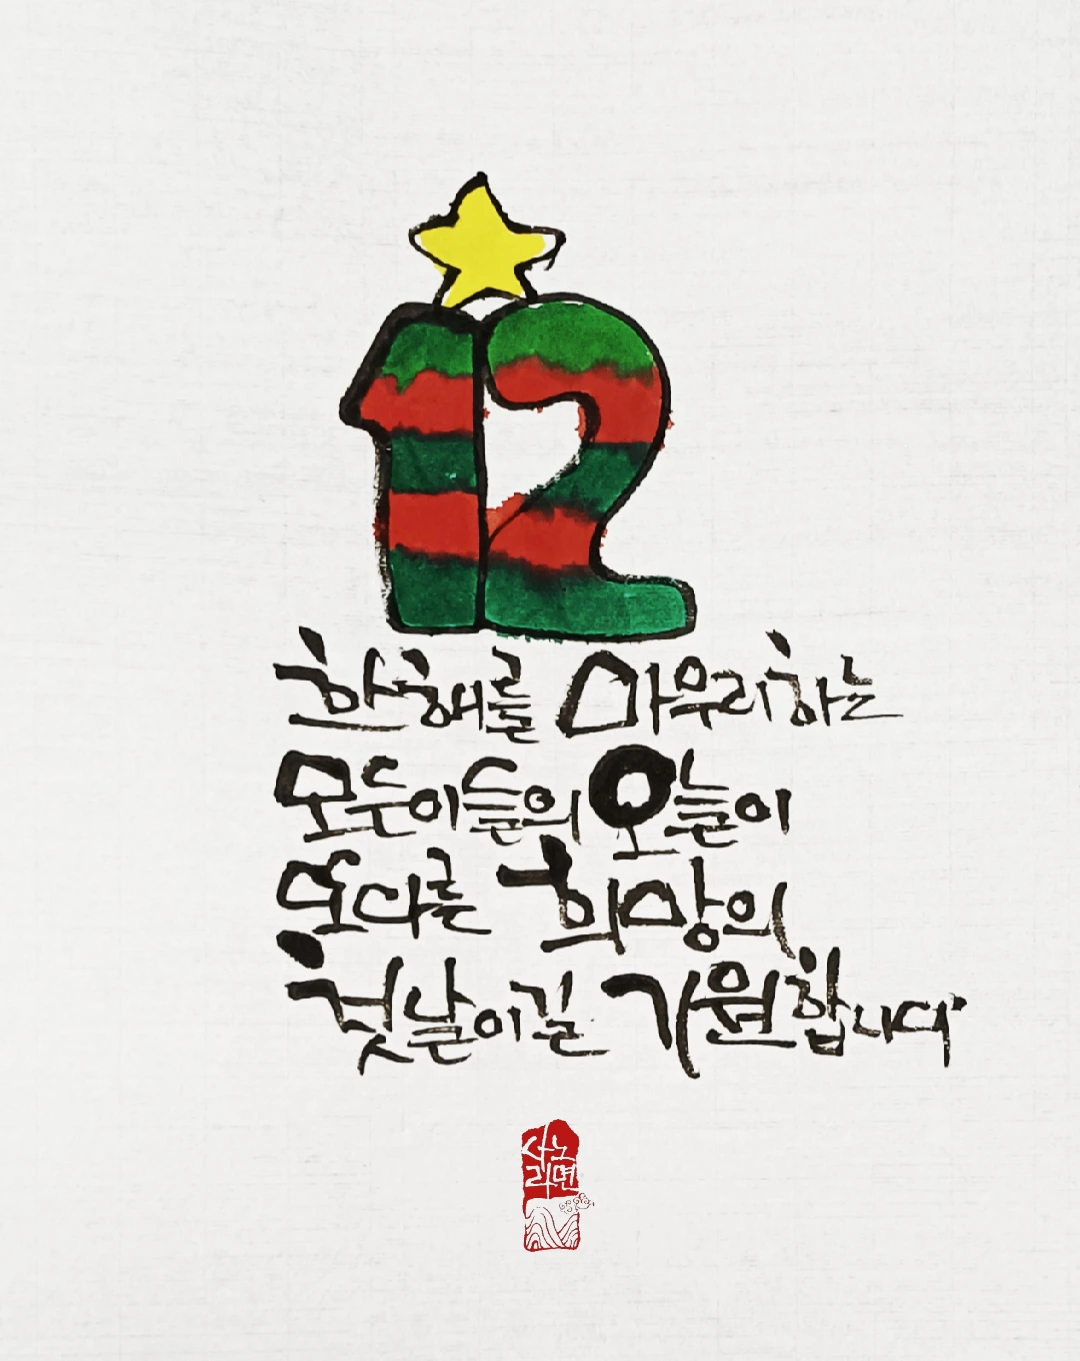 12
한해를 마무리하는
모든이들의 오늘이
또다른 희망의
첫날이길 기원합니다